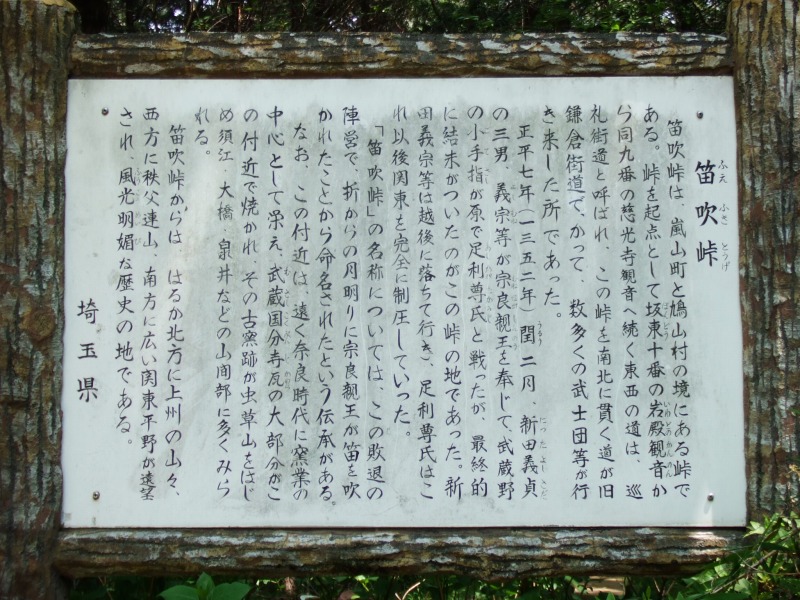 笛吹峠
ふえ ふき とうげ
笛吹峠は、嵐山町と鳩山村の境にある峠で
ある。峠を起点として坂東十番の岩殿観音か
ら同九番の慈光寺観音へ続く東西の道は、巡
礼街道と呼ばれ、この峠を南北に貫く道が旧
鎌倉街道で、かって、数多くの武士団等が行
き来した所であった。
正平七年(一三五二年)閏二月、新田義貞
の三男、義宗等が宗良親王を奉じて、武蔵野
の小手指が原で足利尊氏と戦ったが、最終的
に結末がついたのがこの峠の地であった。新
田義宗等は越後に落ちて行き、足利尊氏はこ
れ以後関東を完全に制圧していった。
「笛吹峠」の名称については、この敗退の
陣営で、折からの月明りに宗良親王が笛を吹
かれたことから命名されたという伝承がある。
なお、この付近は、遠く奈良時代に窯業の
中心として栄え、武蔵国分寺瓦の大部分がこ
の付近で焼かれ、その古窯跡が虫草山をはじ
め須江、大橋、泉井などの山間部に多くみら
れる。
笛吹峠からは、はるか北方に上州の山々、
西方に秩父連山、南方に広い関東平野が遠望
され、風光明媚な歴史の地である。
埼玉県